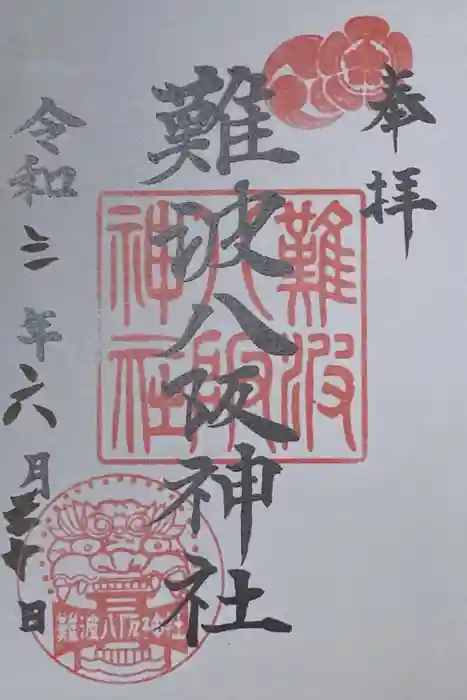 奉拝
難波八阪神社
難波八阪神社
令和三年六月三十日
難波八阪神社